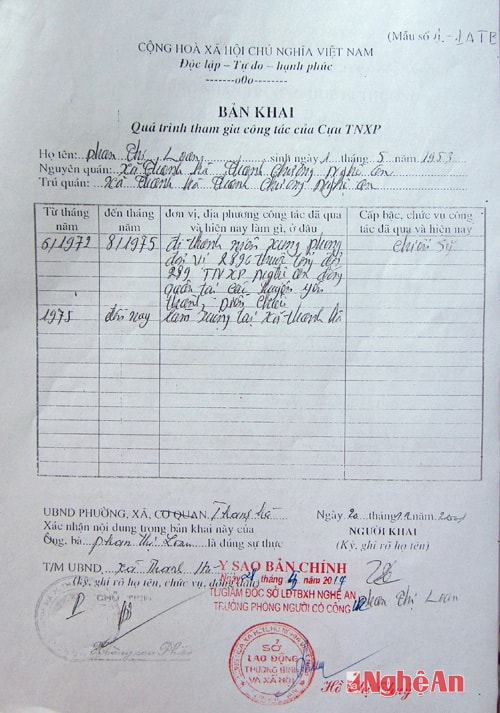 (Mẫu số 1-LATB
CỘNG HOÀ XÃ HỘI CHỦ NGHĨA VIỆT NAM
Độc lập – Tự do – hạnh phúc
-------o0o-------
BẢN KHAI
Quá trình tham gia công tác của Cựu TNXP
Họ tên: phan Thị Loan sinh ngày 1 tháng 5 năm 1953
Nguyên quán: Xã Thanh Hà Thanh Chương Nghệ an
Trú quán: Xã Thanh Hà Thanh Chương Nghệ an
Từ tháng năm đến tháng năm đơn vị, địa phương công tác đã qua và hiện nay làm gì, ở đâu Cấp bậc, chức vụ công tác đã qua và hiện nay
6/1972 8/1975 đi thanh niên xung phong Chiến Sỹ
đơn vị 2896 thuộc tổng đội
289 TNXP Nghệ an đóng
quân tại các huyện yên
thanh, Diễn Châu
1975 đến nay làm ruộng tại xã thanh Hà
UBND PHƯỜNG, XÃ, CƠ QUAN Thanh Hà Ngày 20
Xác nhận nội dung trong bản khai này của NGƯỜI KHAI
Ông, bà phan thị Loan là đúng sự thực (Ký, ghi rõ họ tên)
T/M UBND xã Thanh Hà
(ký, ghi rõ họ tên, chức vụ, đóng dấu)
CHỦ TỊCH
Y SAO BẢN CHÍNH
Ngày tháng năm 2014
TL/GIÁM ĐỐC SỞ LĐTBXH NGHỆ AN
TRƯỞNG PHÒNG NGƯỜI CÓ CÔNG
phan Thị Loan
SỞ
LAO ĐỘNG
THƯƠNG BINH
VÀ XÃ HỘI
NghệAn